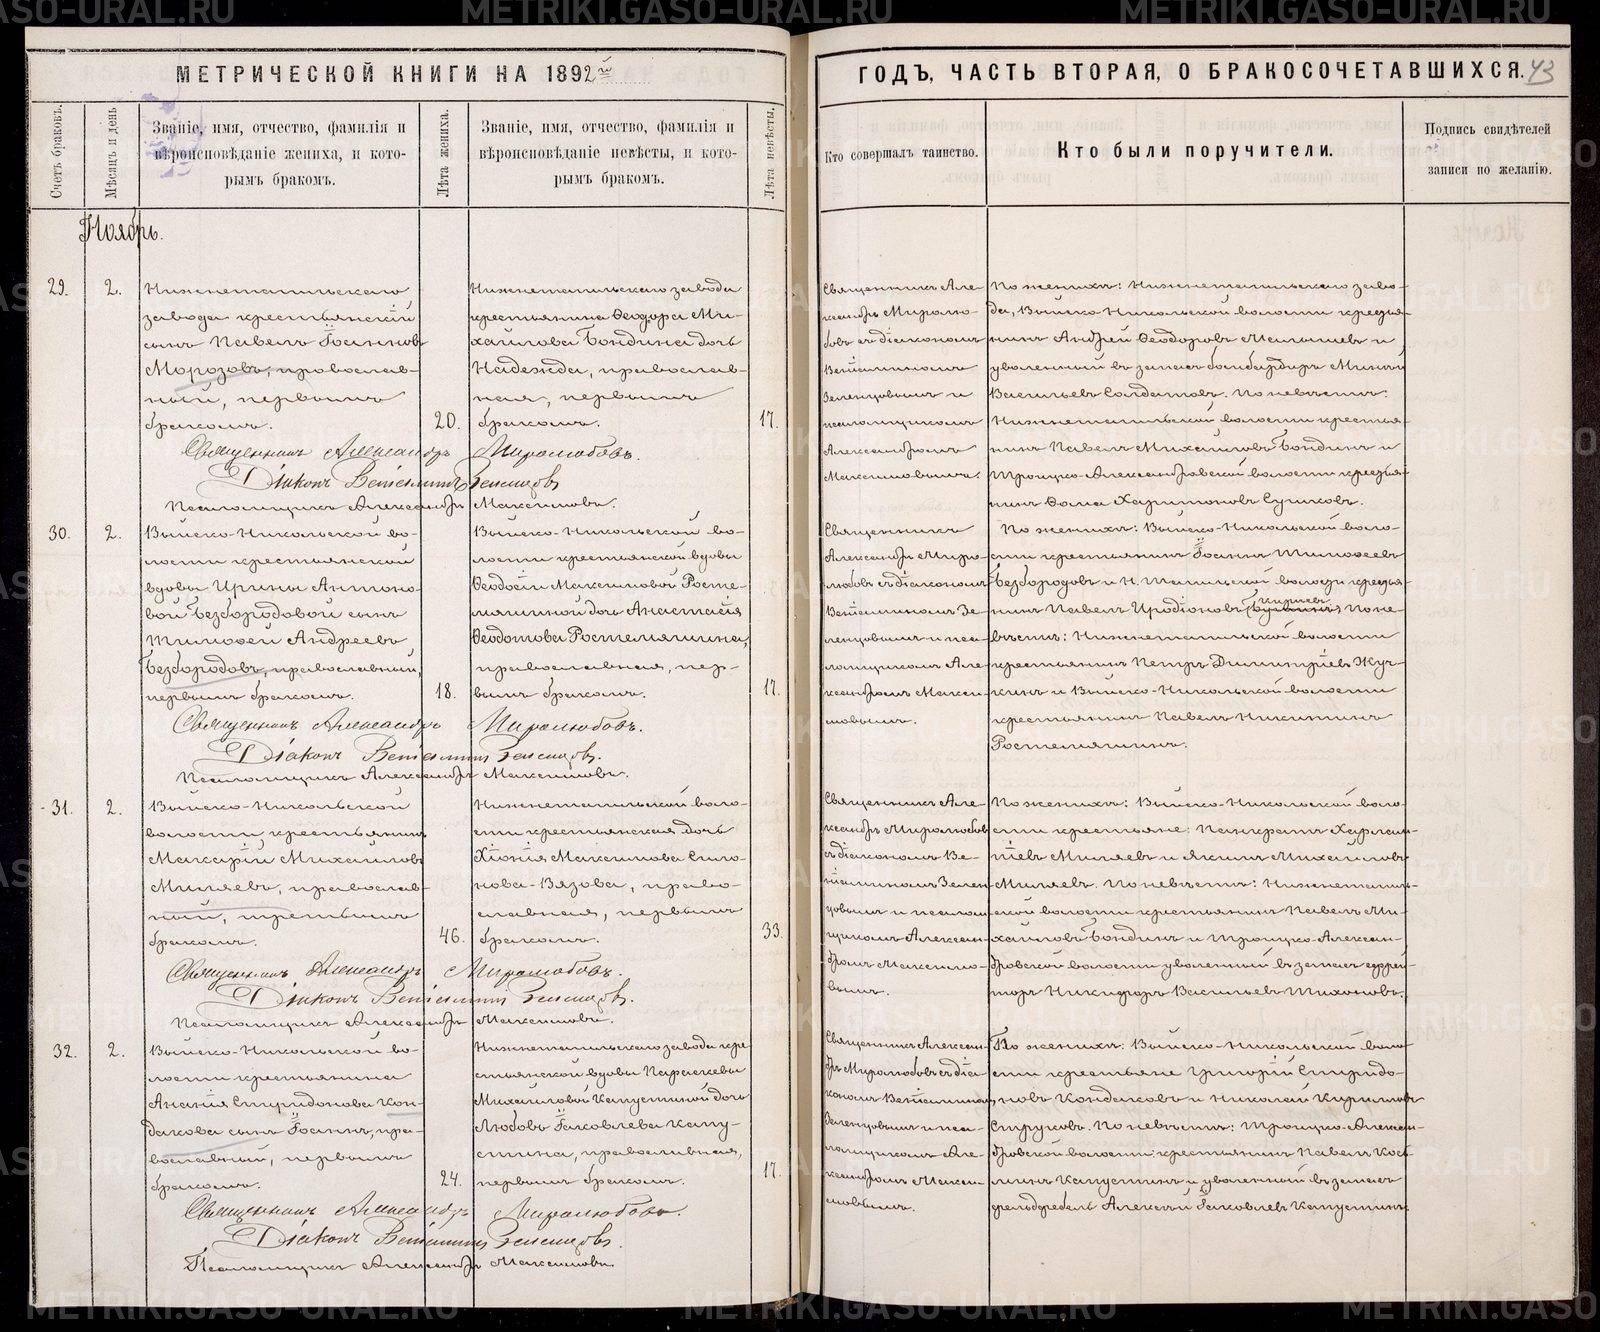 МЕТРИЧЕСКОЙ КНИГИ НА 1892й
Счетъ браковъ.
Мѣсяцъ и день
Званіе, имя, отчество, фамилія и
вѣроисповѣданіе жениха, и кото-
рымъ бракомъ.
Лѣта жениха.
Званіе, имя, отчество, фамилія и
вѣроисповѣданіе невѣсты, и кото-
рымъ бракомъ.
Лѣта невѣсты.
Ноябрь.
29.
2.
Нижнетагильскаго
завода крестьянскій
сынъ Павелъ Іоанновъ
Морозовъ, православ-
ный, первымъ
бракомъ.
20.
Нижнетагильскаго завода
крестьянина Ѳеодора Ми-
хаилова Бондина дочь
Надежда, православ-
ная, первымъ
бракомъ.
17.
Священникъ Александръ Миролюбовъ.
Діаконъ Веніаминъ Зеленцовъ
Псаломщикъ Александръ Максимовъ.
30.
2.
Выйско-Никольской во-
лости крестьянской
вдовы Ирины Антоно-
вой Безбородовой сынъ
Тимоѳей Андреевъ
Безбородовъ, православный,
первымъ бракомъ.
18.
Выйско-Никольской во-
лости крестьянской вдовы
Ѳеодосіи Максимовой Росте-
мяшиной дочь Анастасія
Ѳеодотова Ростемяшина,
православная, пер-
вымъ бракомъ.
17.
Священникъ Александръ Миролюбовъ.
Діаконъ Веніаминъ Зеленцовъ.
Псаломщикъ Александръ Максимовъ.
31.
2.
Выйско-Никольской
волости крестьянинъ
Макарій Михайловъ
Миляевъ, православ-
ный, третьимъ
бракомъ.
46.
Нижнетагильской воло-
сти крестьянская дочь
Хіонія Максимова
Вязова, право-
славная, первымъ
бракомъ.
33.
Священникъ Александръ Миролюбовъ.
Діаконъ Веніаминъ Зеленцовъ.
Псаломщикъ Александръ Максимовъ.
32.
2.
Выйско-Никольской во-
лости крестьянина
Ананія Спиридонова Кон-
дакова сынъ Іоаннъ, пра-
вославный, первымъ
бракомъ.
24.
Нижнетагильскаго завода кре-
стьянской вдовы Параскевы
Михайловой Капустиной дочь
Любовь Іаковлева Капу-
стина, православная,
первымъ бракомъ.
17.
Священникъ Александръ Миролюбовъ.
Діаконъ Веніаминъ Зеленцовъ.
Псаломщикъ Александръ Максимовъ.
ГОДЪ, ЧАСТЬ ВТОРАЯ, О БРАКОСОЧЕТАВШИХСЯ.
43
Кто совершалъ таинство.
Кто были поручители.
Подпись свидѣтелей
записи по желанію.
Священникъ Але-
ксандръ Миролю-
бовъ съ діакономъ
Веніаминомъ
Зеленцовымъ и
псаломщикомъ
Александромъ
Максимовымъ.
По женихѣ: Нижнетагильскаго заво-
да, Выйско-Никольской волости крестья-
нинъ Андрей Ѳеодоровъ Малышевъ и
уволенный въ запасъ бомбардиръ Минѣй
Васильевъ Солдатовъ. По невѣстѣ:
Нижнетагильской волости крестья-
нинъ Павелъ Михайловъ Бондинъ и
Троицко-Александровской волости крестья-
нинъ Ѳома Харитоновъ Сушковъ.
Священникъ
Александръ Миро-
любовъ съ діакономъ
Веніаминомъ Зе-
ленцовымъ и пса-
ломщикомъ Але-
ксандромъ Макси-
мовымъ.
По женихѣ: Выйско-Никольской воло-
сти крестьянинъ Іоаннъ Тимоѳеевъ
Безбородовъ и Н. Тагильской волости крестья-
нинъ Павелъ Иродіоновъ По не-
вѣстѣ: Нижнетагильской волости
крестьянинъ Петръ Димитріевъ Жуч-
кинъ и Выйско-Никольской волости
крестьянинъ Павелъ Никитинъ
Ростемяшинъ.
Священникъ Але-
ксандръ Миролюбовъ
съ діакономъ Ве-
ніаминомъ Зелен-
цовымъ и псалом-
щикомъ Алексан-
дромъ Максимо-
вымъ.
По женихѣ: Выйско-Никольской воло-
сти крестьяне: Панкратъ Харлам-
піевъ Миляевъ и Якимъ Михайловъ
Миляевъ. По невѣстѣ: Нижнетагиль-
ской волости крестьянинъ Павелъ Ми-
хайловъ Бондинъ и Троицко-Алексан-
дровской волости уволенный въ запасъ ефрей-
торъ Никифоръ Васильевъ Тихоновъ.
Священникъ Алексан-
дръ Миролюбовъ съ діа-
кономъ Веніаминомъ
Зеленцовымъ и пса-
ломщикомъ Але-
ксандромъ Макси-
мовымъ.
По женихѣ: Выйско-Никольской воло-
сти крестьяне Григорій Спиридо-
новъ Кондаковъ и Николай Кирилловъ
Струковъ. По невѣстѣ: Троицко-Алексан-
дровской волости крестьянинъ Павелъ Кось-
минъ Капустинъ и уволенный въ запасъ
фельдфебель Алексѣй Іаковлевъ Капустинъ.
METRIKI.GASO-URAL.RU